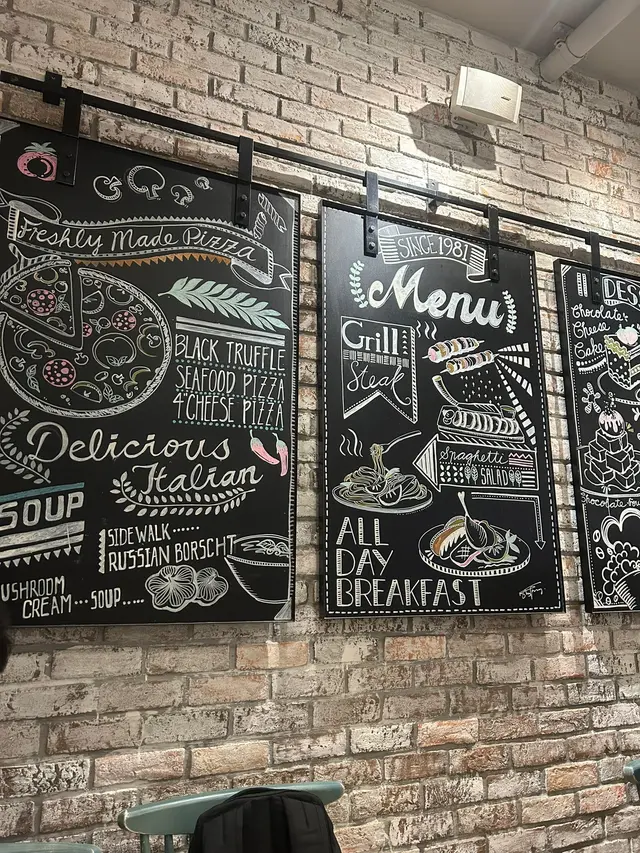 Freshly Made Pizza
BLACK TRUFFLE
SEAFOOD PIZZA
4'CHEESE PIZZA
Delicious
Italian
SOUP
SIDEWALK ······
RUSSIAN BORSCHT
USHROOM
CREAM ··· SOUP ·····
SINCE 1981
Menu
Grill
Steak
Spaghetti
SALAD
ALL
DAY
BREAKFAST
DES
Chocolate
Cheese
Cake
Chocolate